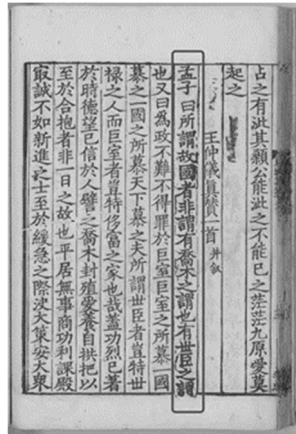 占之有泚其顙公能泚之不能已之茫茫九原愛莫
起之
王仲儀真贊一首并叙
孟子曰所謂故國者非謂有喬木之謂也有世臣之謂
也又曰為政不難不得罪於巨室巨室之所慕一國
慕之一國之所慕天下慕之夫所謂世臣者豈特世
祿之人而巨室者豈特侈富之家也哉蓋功烈已著
於時德望已信於人譬之喬木封殖愛養自拱把以
至於合抱者非一日之故也平居無事商功利課殿
冣誠不如新進之士至於緩急之際決大策安大衆